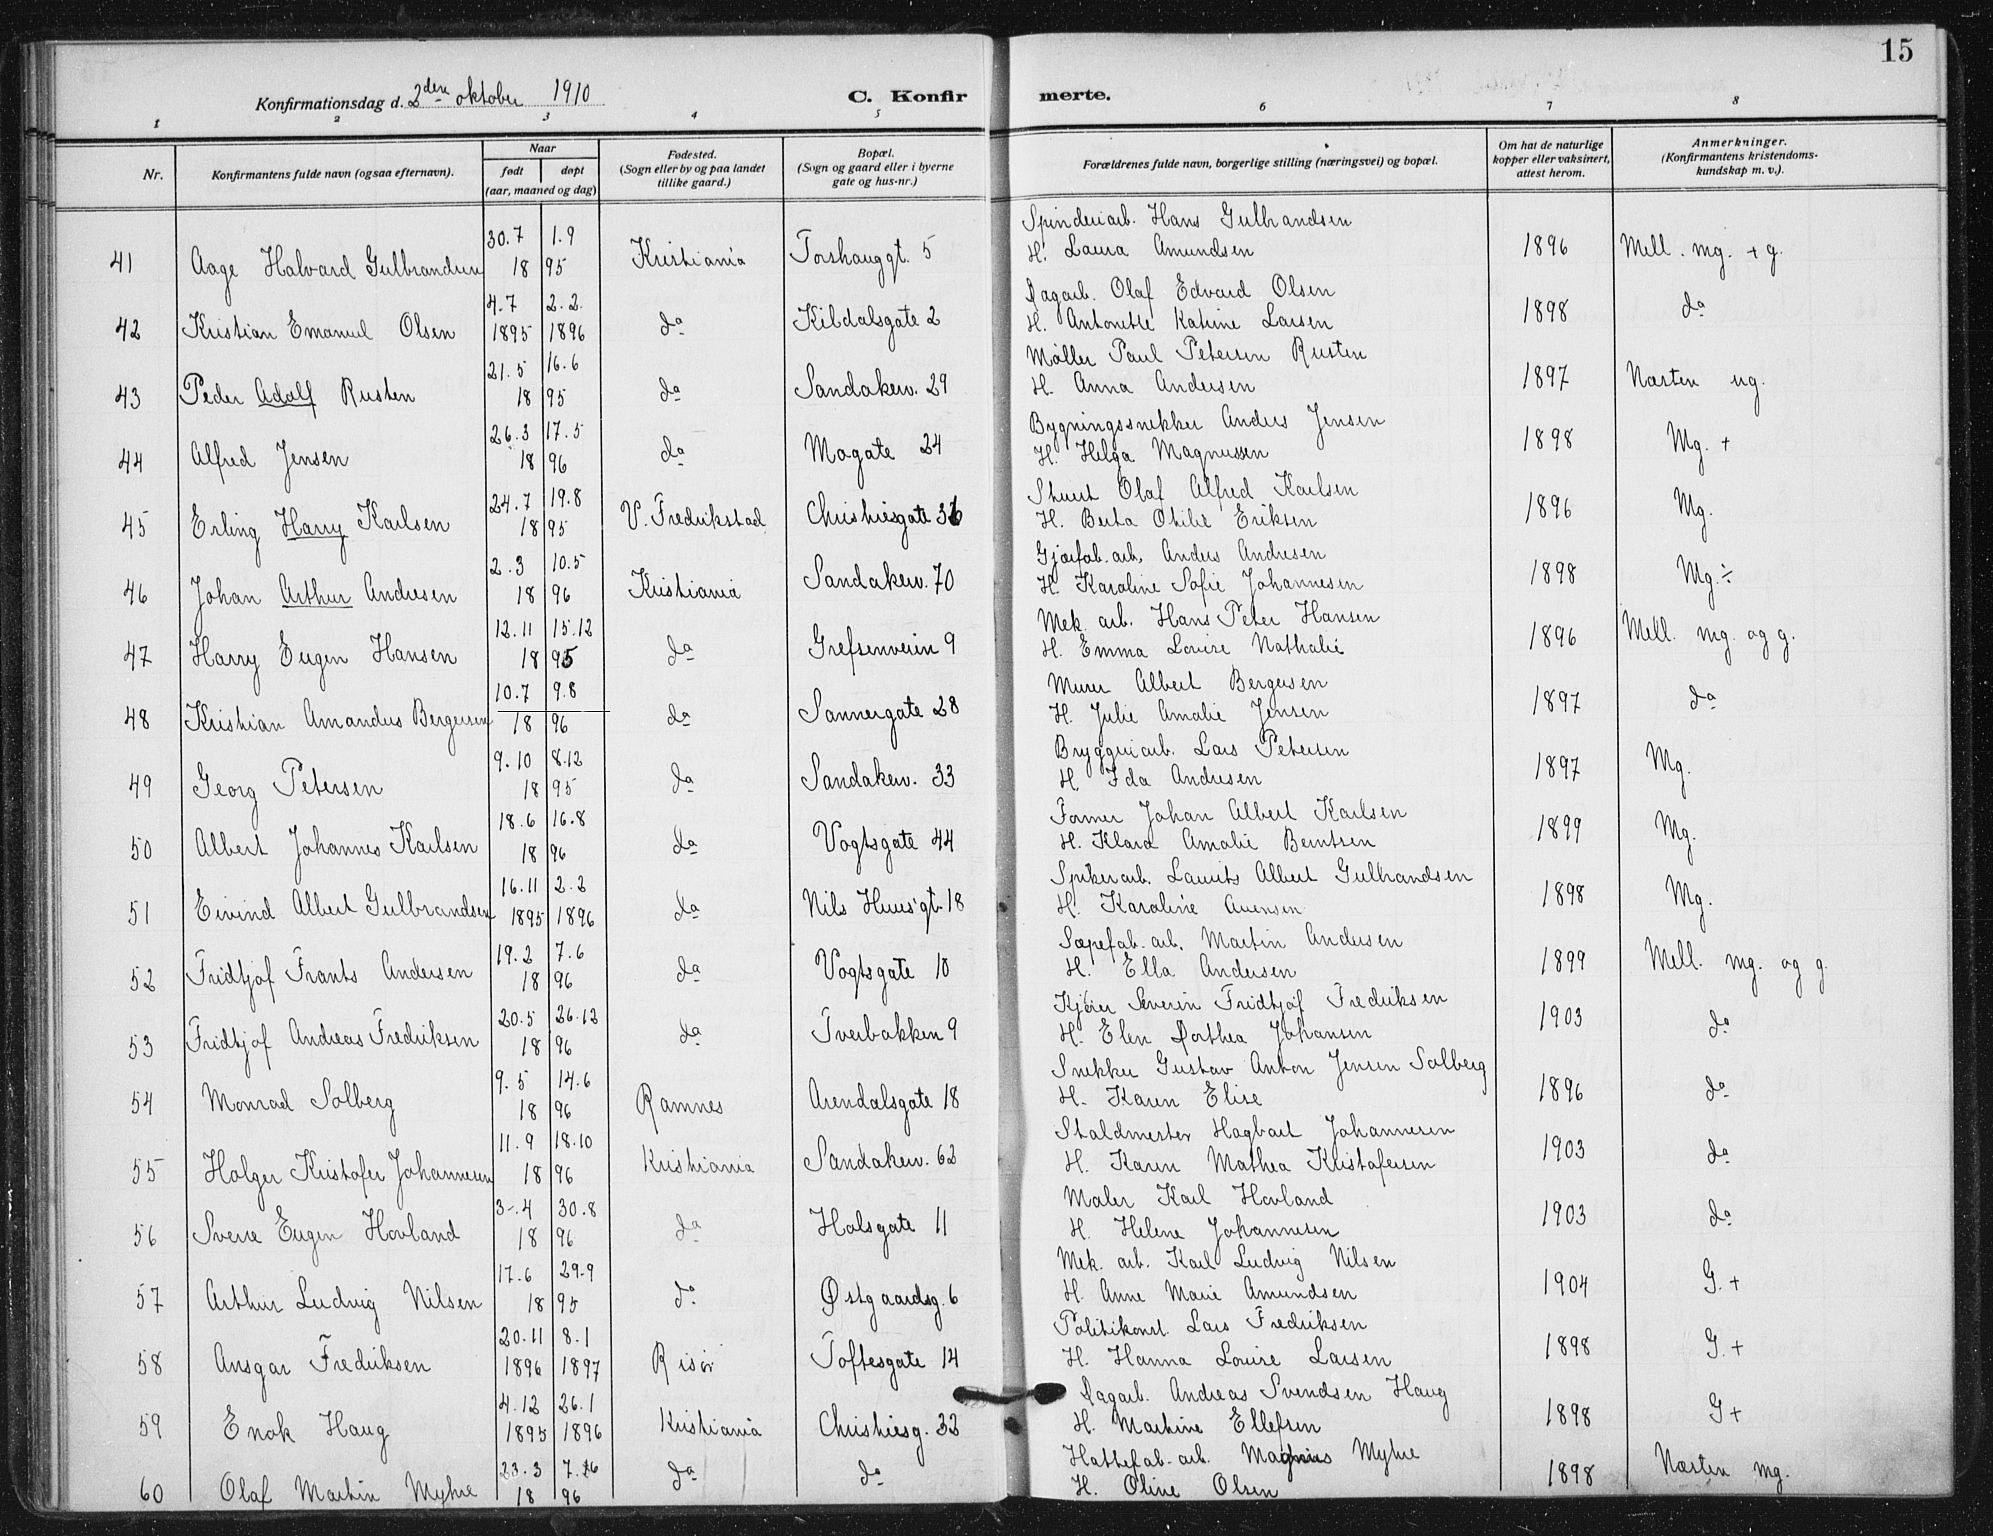 15
Konfirmationsdag d. 2den oktober 1910 C. Konfirmerte.
1 2 3 4 5 6 7 8
Nr. Konfirmantens fulde navn (ogsaa efternavn). Naar født døpt (aar, maaned og dag) Fødested. (Sogn eller by og paa landet tillike gaard.) Bopæl. (Sogn og gaard eller i byerne gate og hus-nr.) Forældrenes fulde navn, borgerlige stilling (næringsvei) og bopæl. Om hat de naturlige kopper eller vaksinert, attest herom. Anmerkninger. (Konfirmantens kristendoms-kundskap m. v.).
30.7 1.9 Spinderiarb. Hans Gulbrandsen
41 Aage Halvard Gulbrandsen 18 95 Kristiania Torshauggt. 5 H. Laura Amundsen 1896 Mell. mg. + g.
4.7 2.2. Dagarb. Olaf Edvard Olsen
42 Kristian Emanuel Olsen 1895 1896 do Kildalsgate 2 H. Antonette Katrine Larsen 1898 do
21.5 16.6 Møller Paul Petersen Rusten
43 Peder Adolf Rusten 18 95 do Sandakerv. 29 H. Anna Andersen 1897 Næsten mg.
26.3 17.5 Bygningssnekker Anders Jensen
44 Alfred Jensen 18 96 do Mogate 24 H. Helga Magnussen 1898 Mg. +
24.7 19.8 Stuert Olaf Alfred Karlsen
45 Erling Harry Karlsen 18 95 V. Fredrikstad Christiesgate 36 H. Berta Otilie Eriksen 1896 Mg.
2.3 10.5 Gjærfab. arb. Anders Andresen
46 Johan Arthur Andresen 18 96 Kristiania Sandakerv. 70 H. Karoline Sofie Johannesen 1898 Mg. ÷
12.11 15.12 Mek. arb. Hans Peter Hansen
47 Harry Eugen Hansen 18 95 do Grefsenveien 9 H. Emma Lovise Nathalie 1896 Mell. mg. og g.
10.7 9.8 Murer Albert Bergersen
48 Kristian Amandus Bergersen 18 96 do Sannergate 28 H. Julie Amalie Jensen 1897 do
9.10 8.12 Bryggeriarb. Lars Petersen
49 Georg Petersen 18 95 do Sandakerv. 33 H. Ida Andresen 1897 Mg.
18.6 16.8 Former Johan Albert Karlsen
50 Albert Johannes Karlsen 18 96 do Vogtsgate 44 H. Klara Amalie Berntsen 1899 Mg.
16.11 2.2 Spikerarb. Laurits Albert Gulbrandsen
51 Eivind Albert Gulbrandsen 1895 1896 do Nils Huus' gt. 18 H. Karoline 1898 Mg.
19.2 7.6 Sæpefab. arb. Martin Andersen
52 Fridtjof Frants Andersen 18 96 do Vogtsgate 10 H. Ella Andersen 1899 Mell. mg. og g.
20.5 26.12 Kjører Severin Fridtjof Fredriksen
53 Fridtjof Andreas Fredriksen 18 96 do Tverbakken 9 H. Elen Dorthea Johansen 1903 do
9.5 14.6 Snekker Gustav Anton Jensen Solberg
54 Monrad Solberg 18 96 Ramnes Arendalsgate 18 H. Karen Elise 1896 do
11.9 18.10 Staldmester Hagbart Johannesen
55 Holger Kristofer Johannesen 18 96 Kristiania Sandakerv. 62 H. Karen Mathea Kristofersen 1903 do
3.4 30.8 Maler Karl Hovland
56 Sverre Eugen Hovland 18 96 do Holsgate 11 H. Helene Johannesen 1903 do
17.6 29.9 Mek. arb. Karl Ludvig Nilsen
57 Arthur Ludvig Nilsen 18 95 do Østgaardsg. 6 H. Anne Marie Amundsen 1904 G. +
20.11 8.1 Politikonst. Lars Fredriksen
58 Ansgar Fredriksen 1896 1897 Risør Toftesgate 14 H. Hanna Lovise Larsen 1898 G. +
4.12 26.1 Dagarb. Andreas Svendsen Haug
59 Enok Haug 1895 1896 Kristiania Christiesg. 32 H. Martine Ellefsen 1898 G +
23.3 7.6 Hattefab. arb. Magnus Myhre
60 Olaf Martin Myhre 18 96 do do H. Oline Olsen 1898 Næsten mg.